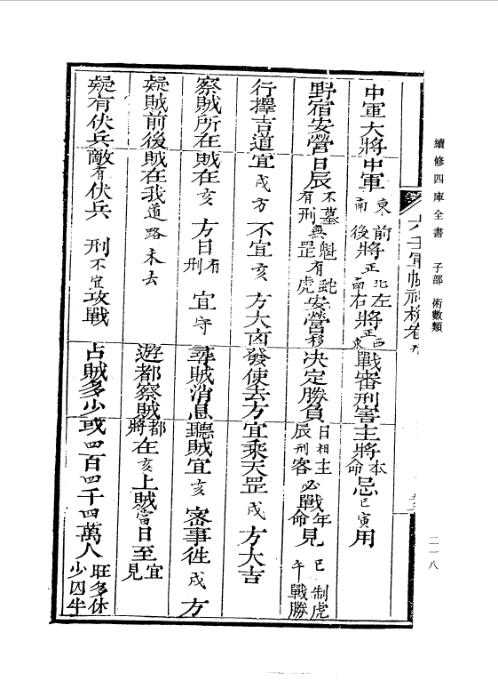 續修四庫全書 子部 術數類
二一八
中軍大將中軍東南前後將正北南左右將正西東戰審刑害主將本命忌巳寅用
野宿安營日辰不墓有刑無魁罡有蛇虎安營移決定勝負日相辰刑主客必戰年命見巳制虎午戰勝
行擇吉道宜戌方不宜亥方大凶發使去方宜乘天罡戌方大吉
察賊所在賊在亥方日有刑宜守尋賊消息聽賊宜亥密事徃戌方
疑賊前後賊在我道路未去遊都察賊都將在亥上賊當日至宜見
疑有伏兵敵有伏兵刑不宜攻戰占賊多少或四百四千四萬人旺多休少囚半